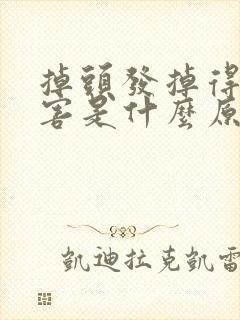 掉頭發掉得
害是什麼原
凱迪拉克凱雷